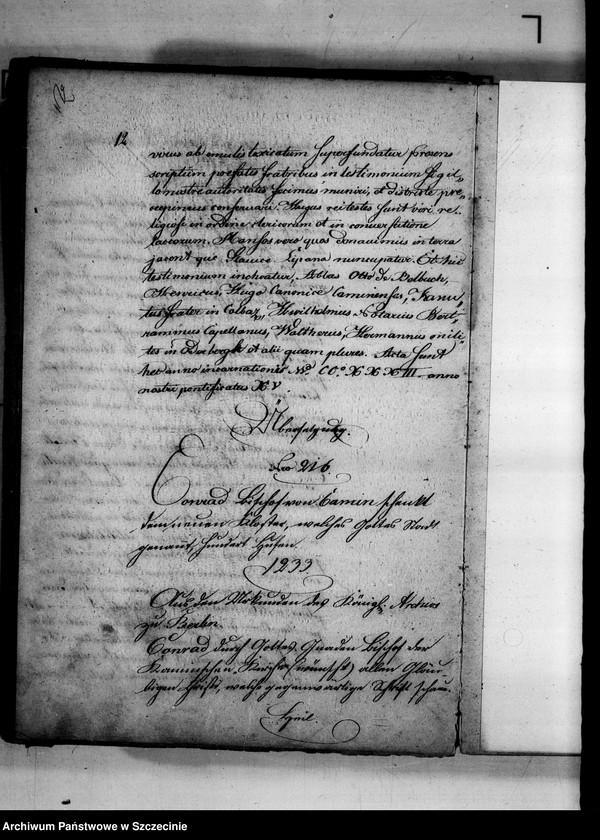 12
virus ab emulis toxicatum superfundatur presens
scriptum prefatis fratribus in testimonium sigil-
lo nostre autoritatis fecimus muniri, et districte pre-
cepimus conservari. Hujus rei testes sunt viri re-
ligiosi in ordine clericorum et in conversatione
laicorum. Mansos vero quos donavimus in terra
jacent que Slavice Lipana nuncupatur. Et hic
testimonium inchoatur. Ablas Otto de Belbuch,
Henricus, Hugo Canonice Caminenses, Kanu-
tus frater in Colbaz, Wilhelmus Notarius Bert-
rammus Capellanus, Waltherus, Hermannus mili-
tes in et alii quam plures. Acta sunt
hec anno incarnationis Mo. CCo XXXIII anno
nostri pontificatus XV.
Übersetzung.
Nro 216.
Conrad Bischof von Camin schenkt
dem neuen Kloster, welches Gottes Stadt
genannt, hundert Hufen.
1233.
Aus den Urkunden des Königl. Archivs
zu Berlin.
Conrad durch Gottes Gnaden Bischof der
Kaminschen Kirche (wünscht) allen Gläu-
bigen Christi, welche gegenwärtige Schrift schau
Heil
Archiwum Państwowe w Szczecinie